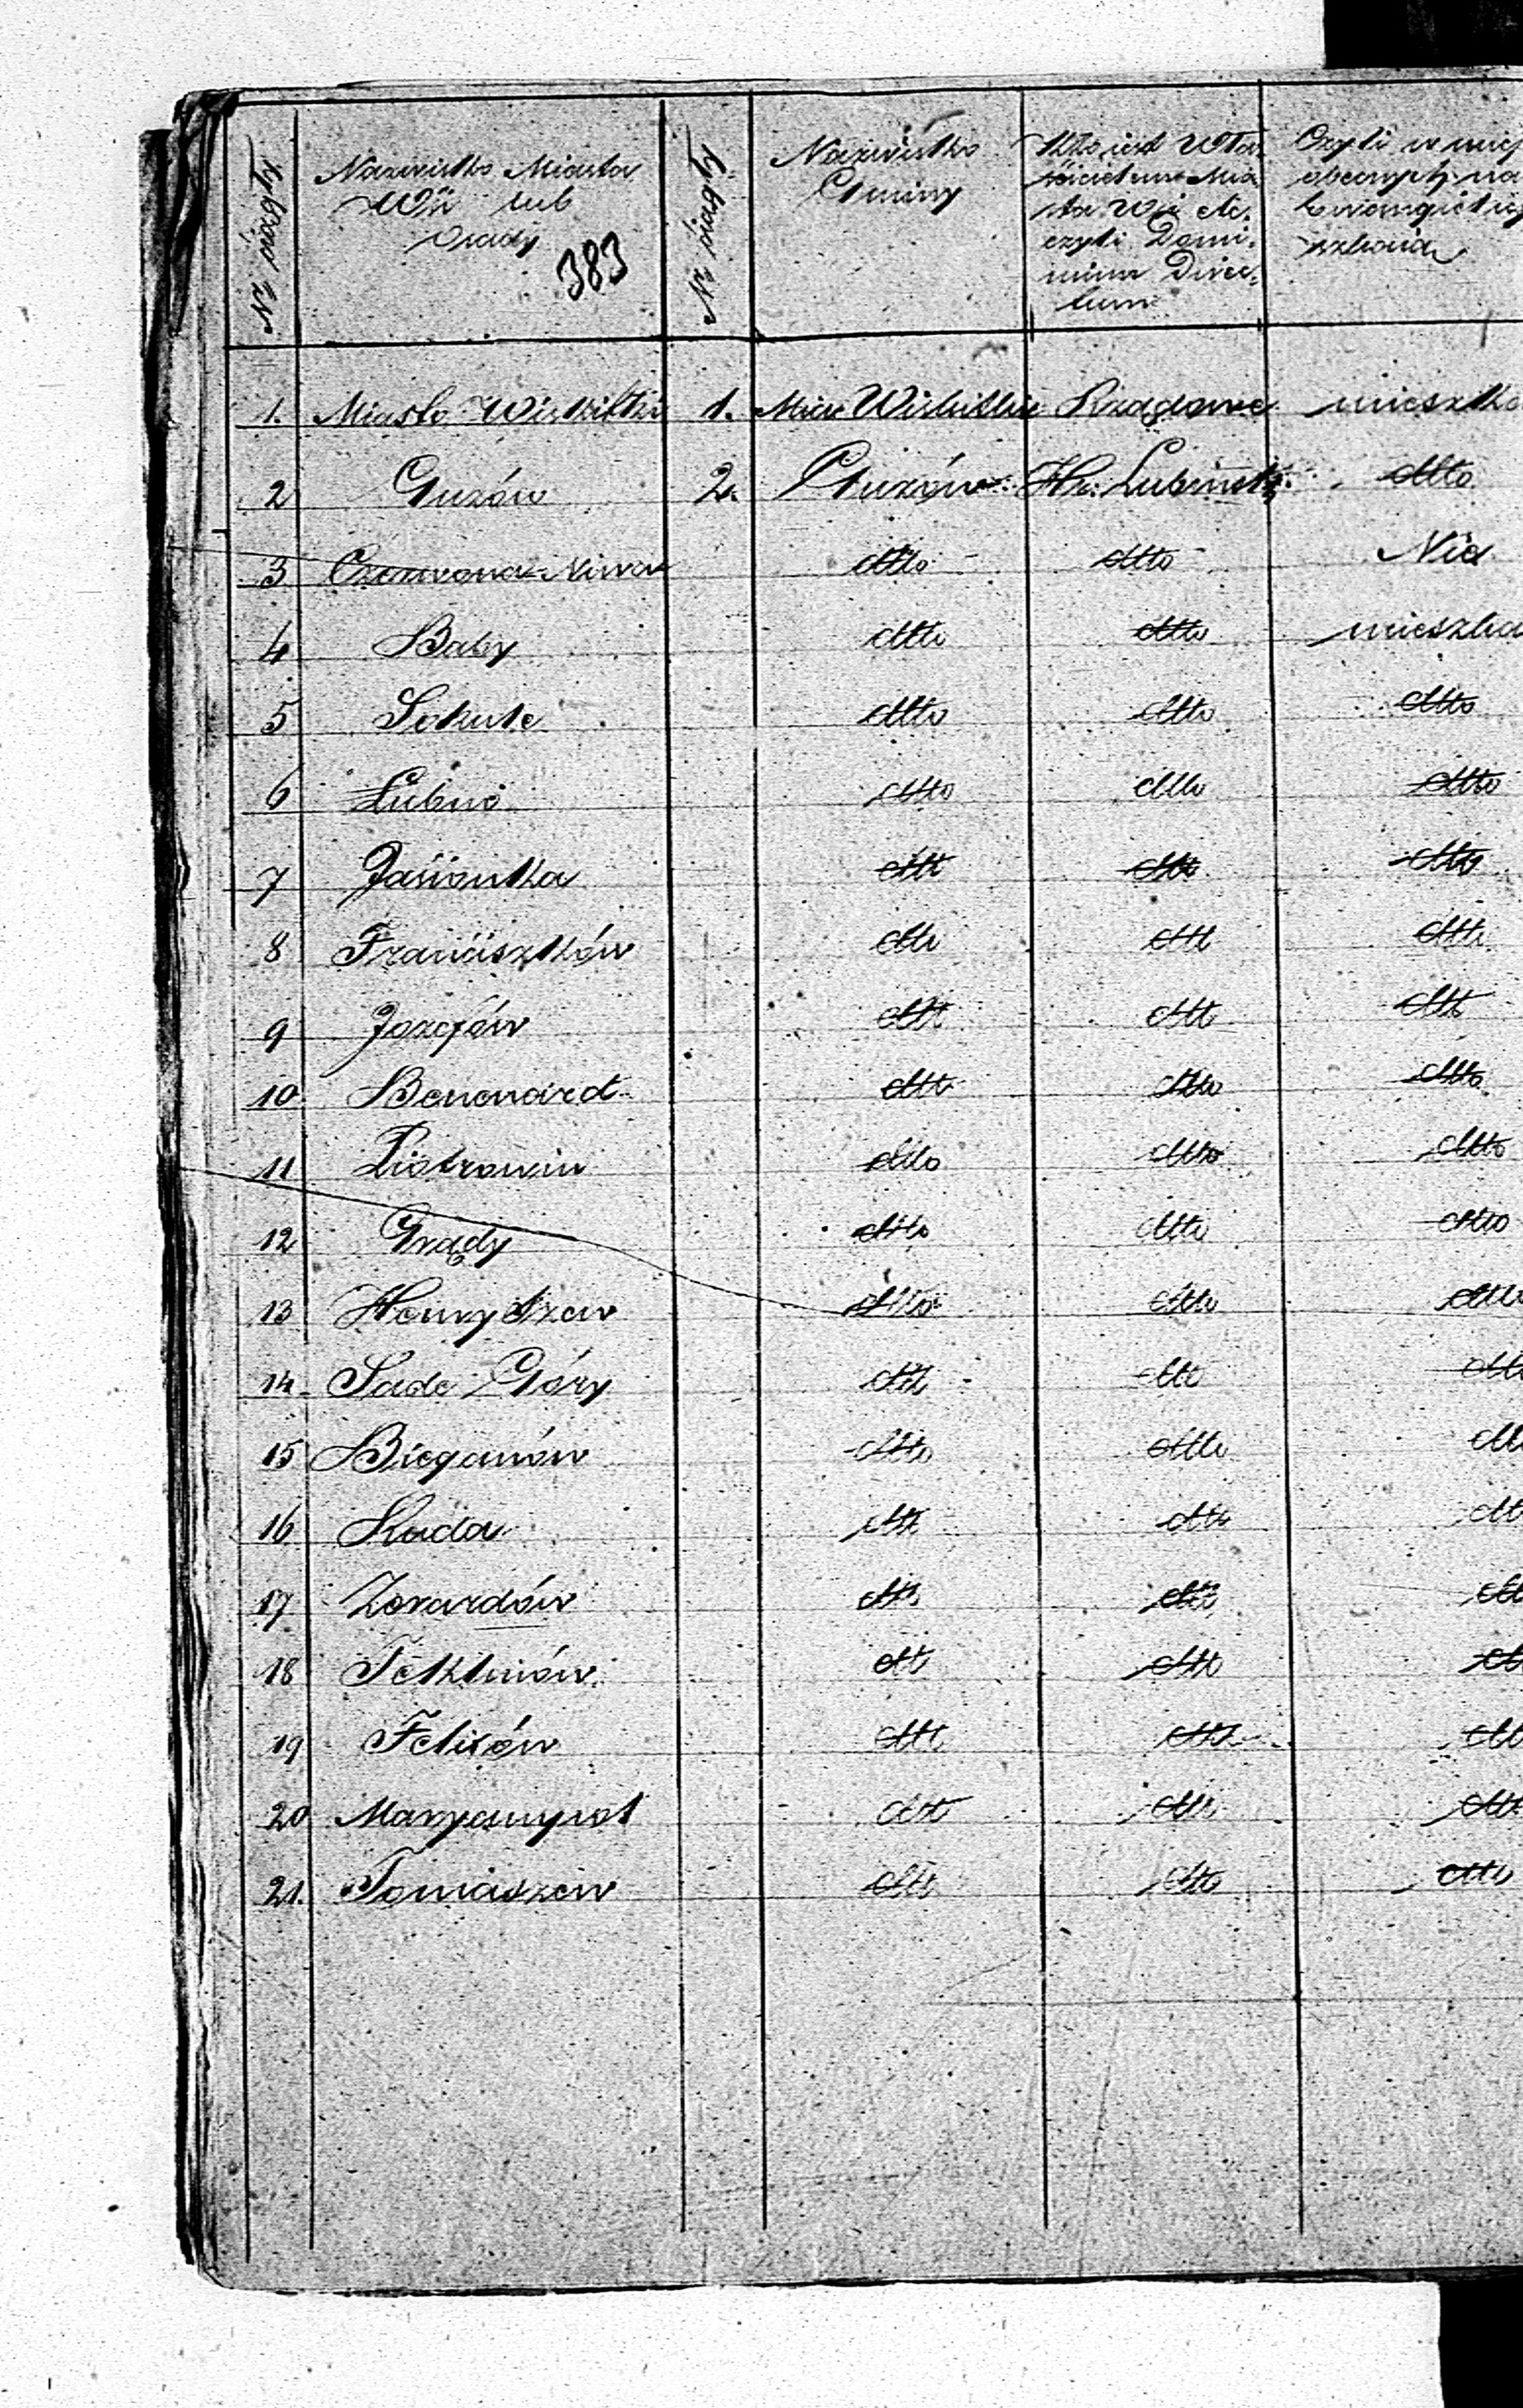 Nr. ciągły
Nazwisko Miasta
Wsi lub
Osady
383
Nr ciągły
Nazwisko
Gminy
Kto jest Wła
ścicielem Mia
sta Wsi etc.
czyli Domi-
nium Direc-
tum
Czyli w
obecnych na
1. Miasto Wiskitki 1. Mias. Wiskitki Rządowe mieszka
2 Guzów 2. Guzów Hr. Lubiński dtto
3 Czerwona Niwa dtto dtto Nie
4 Baby dtto dtto mieszka
5 Sokule dtto dtto dtto
6 Lubno dtto dtto dtto
7 Jasionka dtto dtto dtto
8 Franciszków dtto dtto dtto
9 Jozefów dtto dtto dtto
10 Benenard dtto dtto dtto
11 Piotrowin dtto dtto dtto
12 Grądy dtto dtto dtto
13 Henryszew dtto dtto dtto
14 Sade Góry dtto dtto dtto
15 Bieganów dtto dtto dtto
16 dtto dtto dtto
17 Zyrardów dtto dtto dtto
18 Teklinów dtto dtto dtto
19 Felixów dtto dtto dtto
20 Maryampol dtto dtto dtto
21. Tomaszew dtto dtto dtto